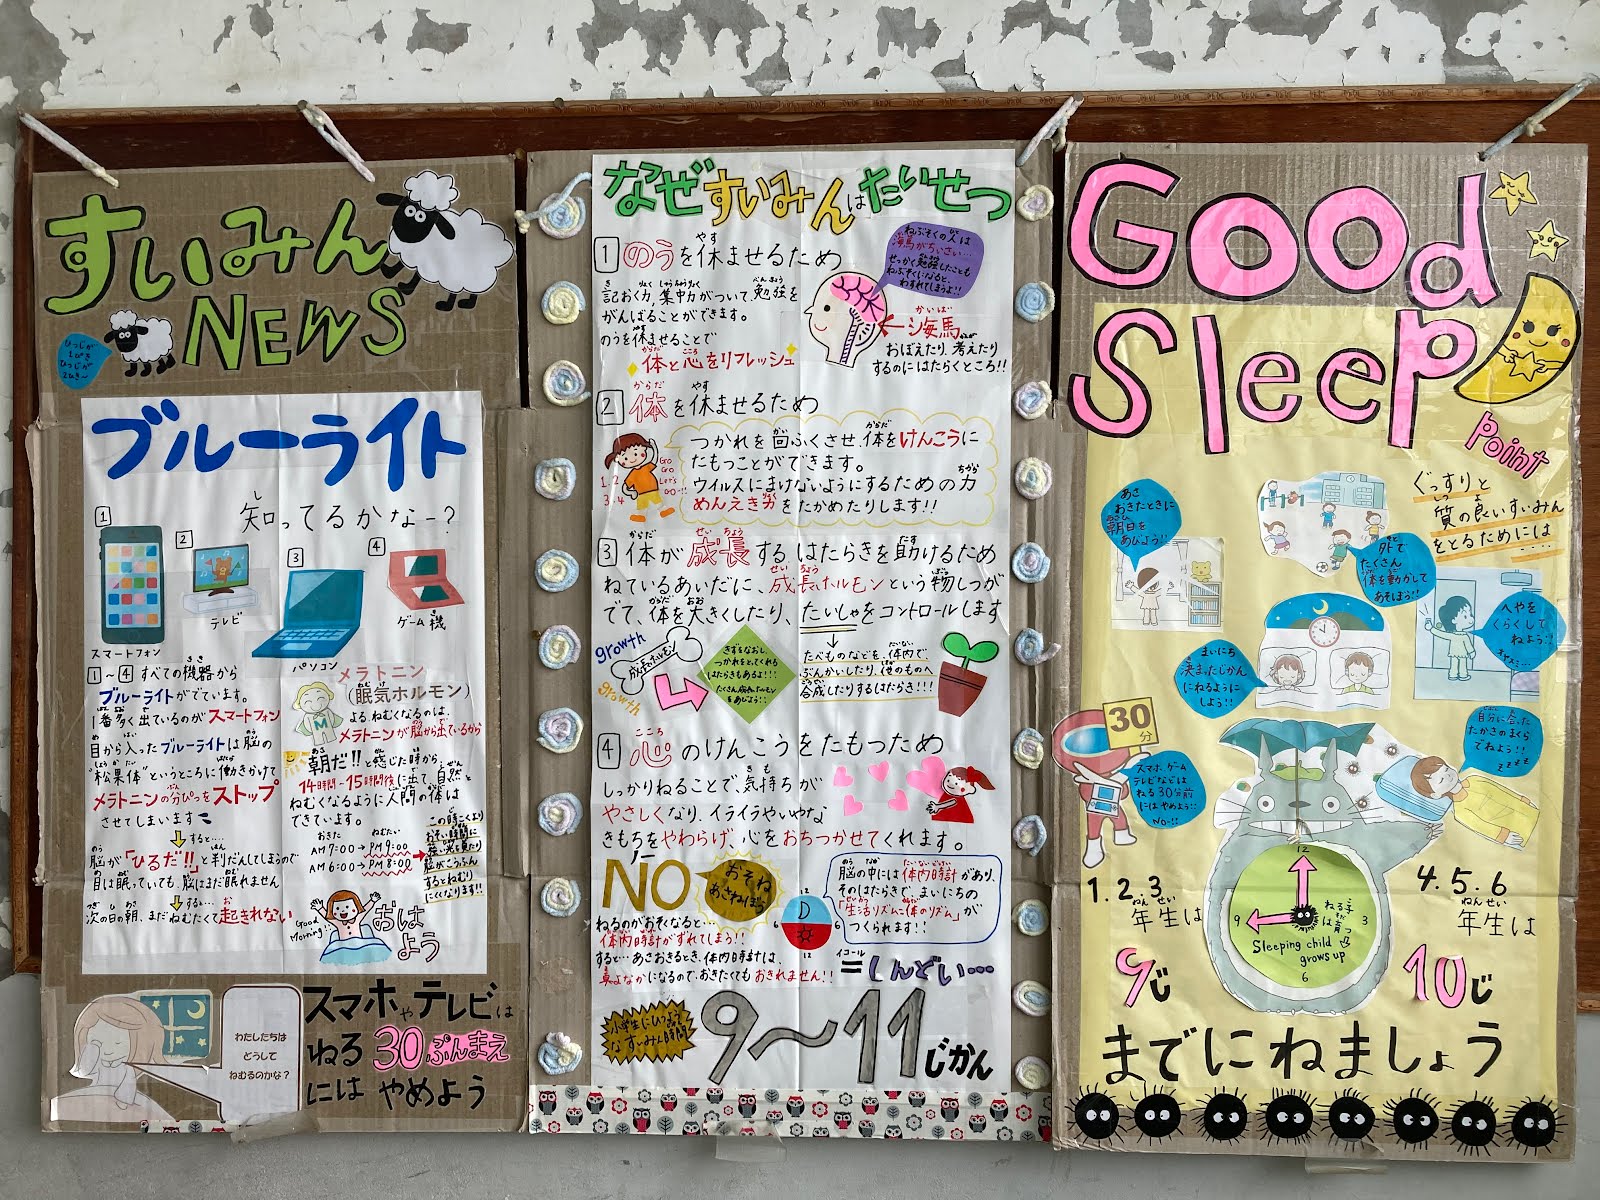 すいみん
NEWS
ひつじが
1ぴき
ひつじが
2ひき〜
ブルーライト
知ってるかなー?
1
2
3
4
スマートフォン
テレビ
パソコン
ゲーム機
1〜4 すべての機器から
ブルーライトがでています。
1番多く出ているのがスマートフォン
目から入ったブルーライトは脳の
"松果体"というところに働きかけて
メラトニンの分ぴつをストップ
させてしまいます
すると…
脳が「ひるだ!!」と判だんしてしまうので
目は眠っていても、脳はまだ眠れません
すると…
次の日の朝、まだねむたくて起きれない
メラトニン
(眠気ホルモン)
M
よるねむくなるのは、
メラトニンが脳から出ているから
朝だ!!と感じた時から、
14時間〜15時間後に出て、自然と
ねむくなるように人間の体は
できています。
おきた
ねむたい
AM7:00→PM9:00
AM6:00→PM8:00
この時こくより
おそい時間に
強い光を見たり
脳がこうふん
するとねむり
にくくなります!!
Good
Morning!!
おは
よう
わたしたちは
どうして
ねむるのかな?
スマホやテレビは
ねる30ぷんまえ
にはやめよう
なぜすいみんはたいせつ
1 のうを休ませるため
記おく力,集中力がついて、勉強を
がんばることができます。
のうを休ませることで
体と心をリフレッシュ
ねぶそくの人は
海馬がちいさい…
せっかく勉強したことも
ねぶそくになると、
わすれてしまうよ!!
海馬
おぼえたり、考えたり
するのにはたらくところ!!
2 体を休ませるため
GO
GO
Let's
GO!!
つかれを回ふくさせ、体をけんこうに
たもつことができます。
ウイルスにまけないようにするための力
めんえき力をたかめたりします!!
3 体が成長するはたらきを助けるため
ねているあいだに、成長ホルモンという物しつが
でて、体を大きくしたり、たいしゃをコントロールします
growth
成長ホルモン
growth
きずをなおし、
つかれをとってくれる
はたらきもあるよ!!!
たくさん成長ホルモン
をあびよう!!
たべものなどを、体内で、
ぶんかいしたり、他のものへ
合成したりするはたらき!!!
4 心のけんこうをたもつため
しっかりねることで、気持ちが
やさしくなり、イライラやいやな
きもちをやわらげ、心をおちつかせてくれます。
NO
おそね
あさねぼう
ねるのがおそくなると…
体内時計がずれてしまう!!
すると…あさおきるとき、体内時計は、
真よなかになるので、おきたくてもおきれません!!
12
D
6
6
12
脳の中には体内時計があり、
そのはたらきで、まいにちの
「生活リズム=体のリズム」が
つくられます!!
イコール
=しんどい…
小学生にひつよう
なすいみん時間
9〜11じかん
Good
Sleep
Point
ぐっすりと
質の良いすいみん
をとるためには
あさ
おきたときに
朝日を
あびよう!!
外で
たくさん
体を動かして
あそぼう!!
へやを
くらくして
ねよう!!
まいにち
決まったじかん
にねるように
しよう!!
自分に合った
たかさのまくら
でねよう!!
zzzz
30
分
スマホ、ゲーム
テレビなどは
ねる30分前
にはやめよう!!
NO-!!
1.2.3
年生は
9じ
4.5.6
年生は
10じ
12
9
3
6
ねる子
は
育つ
Sleeping child
grows up
までにねましょう